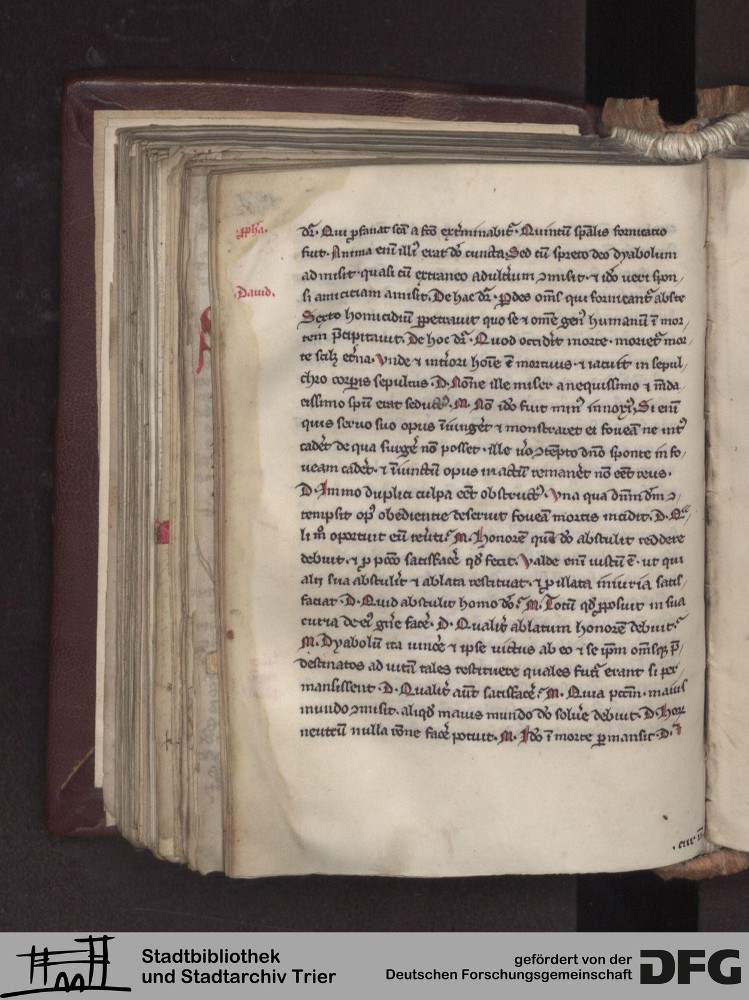 ꝓph̄a.
dr̄. Qui ꝓfanat sc̄a a sc̄o exͭminabiť. Quintū spālis fornicatio
fuit. Anima eni᷎ illiꝰ erat do᷎ cuncta. Sed cū spreto deo dyabolum
admisit. quasi cū extraneo adulťium ꝯmisit. ⁊ iďo veri spon
Dauid.
si amiciciam amisit. De hac dr̄. ꝑdes om̄s qui fornicant᷑ abs te
Sexto homicidiū ꝑpetrauit quo se ⁊ om̄e genꝰ humanū ī mor
tem p̄cipitauit. De hoc dr̄. Quod occidit᷑ morte. moriet᷑ mor
te scilꝫ eťna. Vnde ⁊ inťiori hoīe ē mortuus. ⁊ iacuit in sepul
chro corꝑis sepultus. D. Nōne ille miser a nequissimo ⁊ m̄da
cissimo spū erat seductꝰ. M. Nō iďo fuit minꝰ innoxiꝰ. Si enī
quis seruo suo opus īiung̉et ⁊ monstraret ei foueā ne intꝰ
cad̉et de qua surg̉e nō posset. ille v̊o ꝯtēpto dn̄o sponte in fo
ueam cad̉et. ⁊ īiunctū opus in actū remanēt nō eēt reus.
D. Immo duplici culpa eēt obstructꝰ. Vna qua dn̄m dm̄ ꝯ
tempsit opꝰ obedientie deseruit foueā mortis incidit. D. Qͣ
li mͦ oportuit eū reu᷎ti. M. Honorē quē do᷎ abstulit reddere
debuit. ⁊ ꝓ pcc̄o satisfac̉e qd̄ fecit. Valde enī iustū ē. ut qui
alij sua abstul̉it ⁊ ablata restituat. ⁊ ꝓ illata iniuria satis
faciat. D. Quid abstulit homo do᷎. M. Totū qd̄ ꝓposuit in sua
curia de eiꝰ gn̄e fac̉e. D. Qualiť ablatum honorē debuit.
M. Dyabolū ita uinc̉e ⁊ ipse uictus ab eo ⁊ se ip̄m om̄sqꝫ p̄
destinatos ad uitā tales restituere quales futi᷎ erant si per
mansissent. D. Qualiť aūt satisfac̉e. M. Quia pcc̄m. maius
mundo ꝯmisit. aliqd̄ maius mundo do᷎ solu̓e debuit. D. Hoꝝ
neutrū nulla rōne fac̉e potuit. M. Iďo ī morte ꝑmansit. D.
Stadtbibliothek
und Stadtarchiv Trier
gefördert von der
Deutschen Forschungsgemeinschaft
DFG